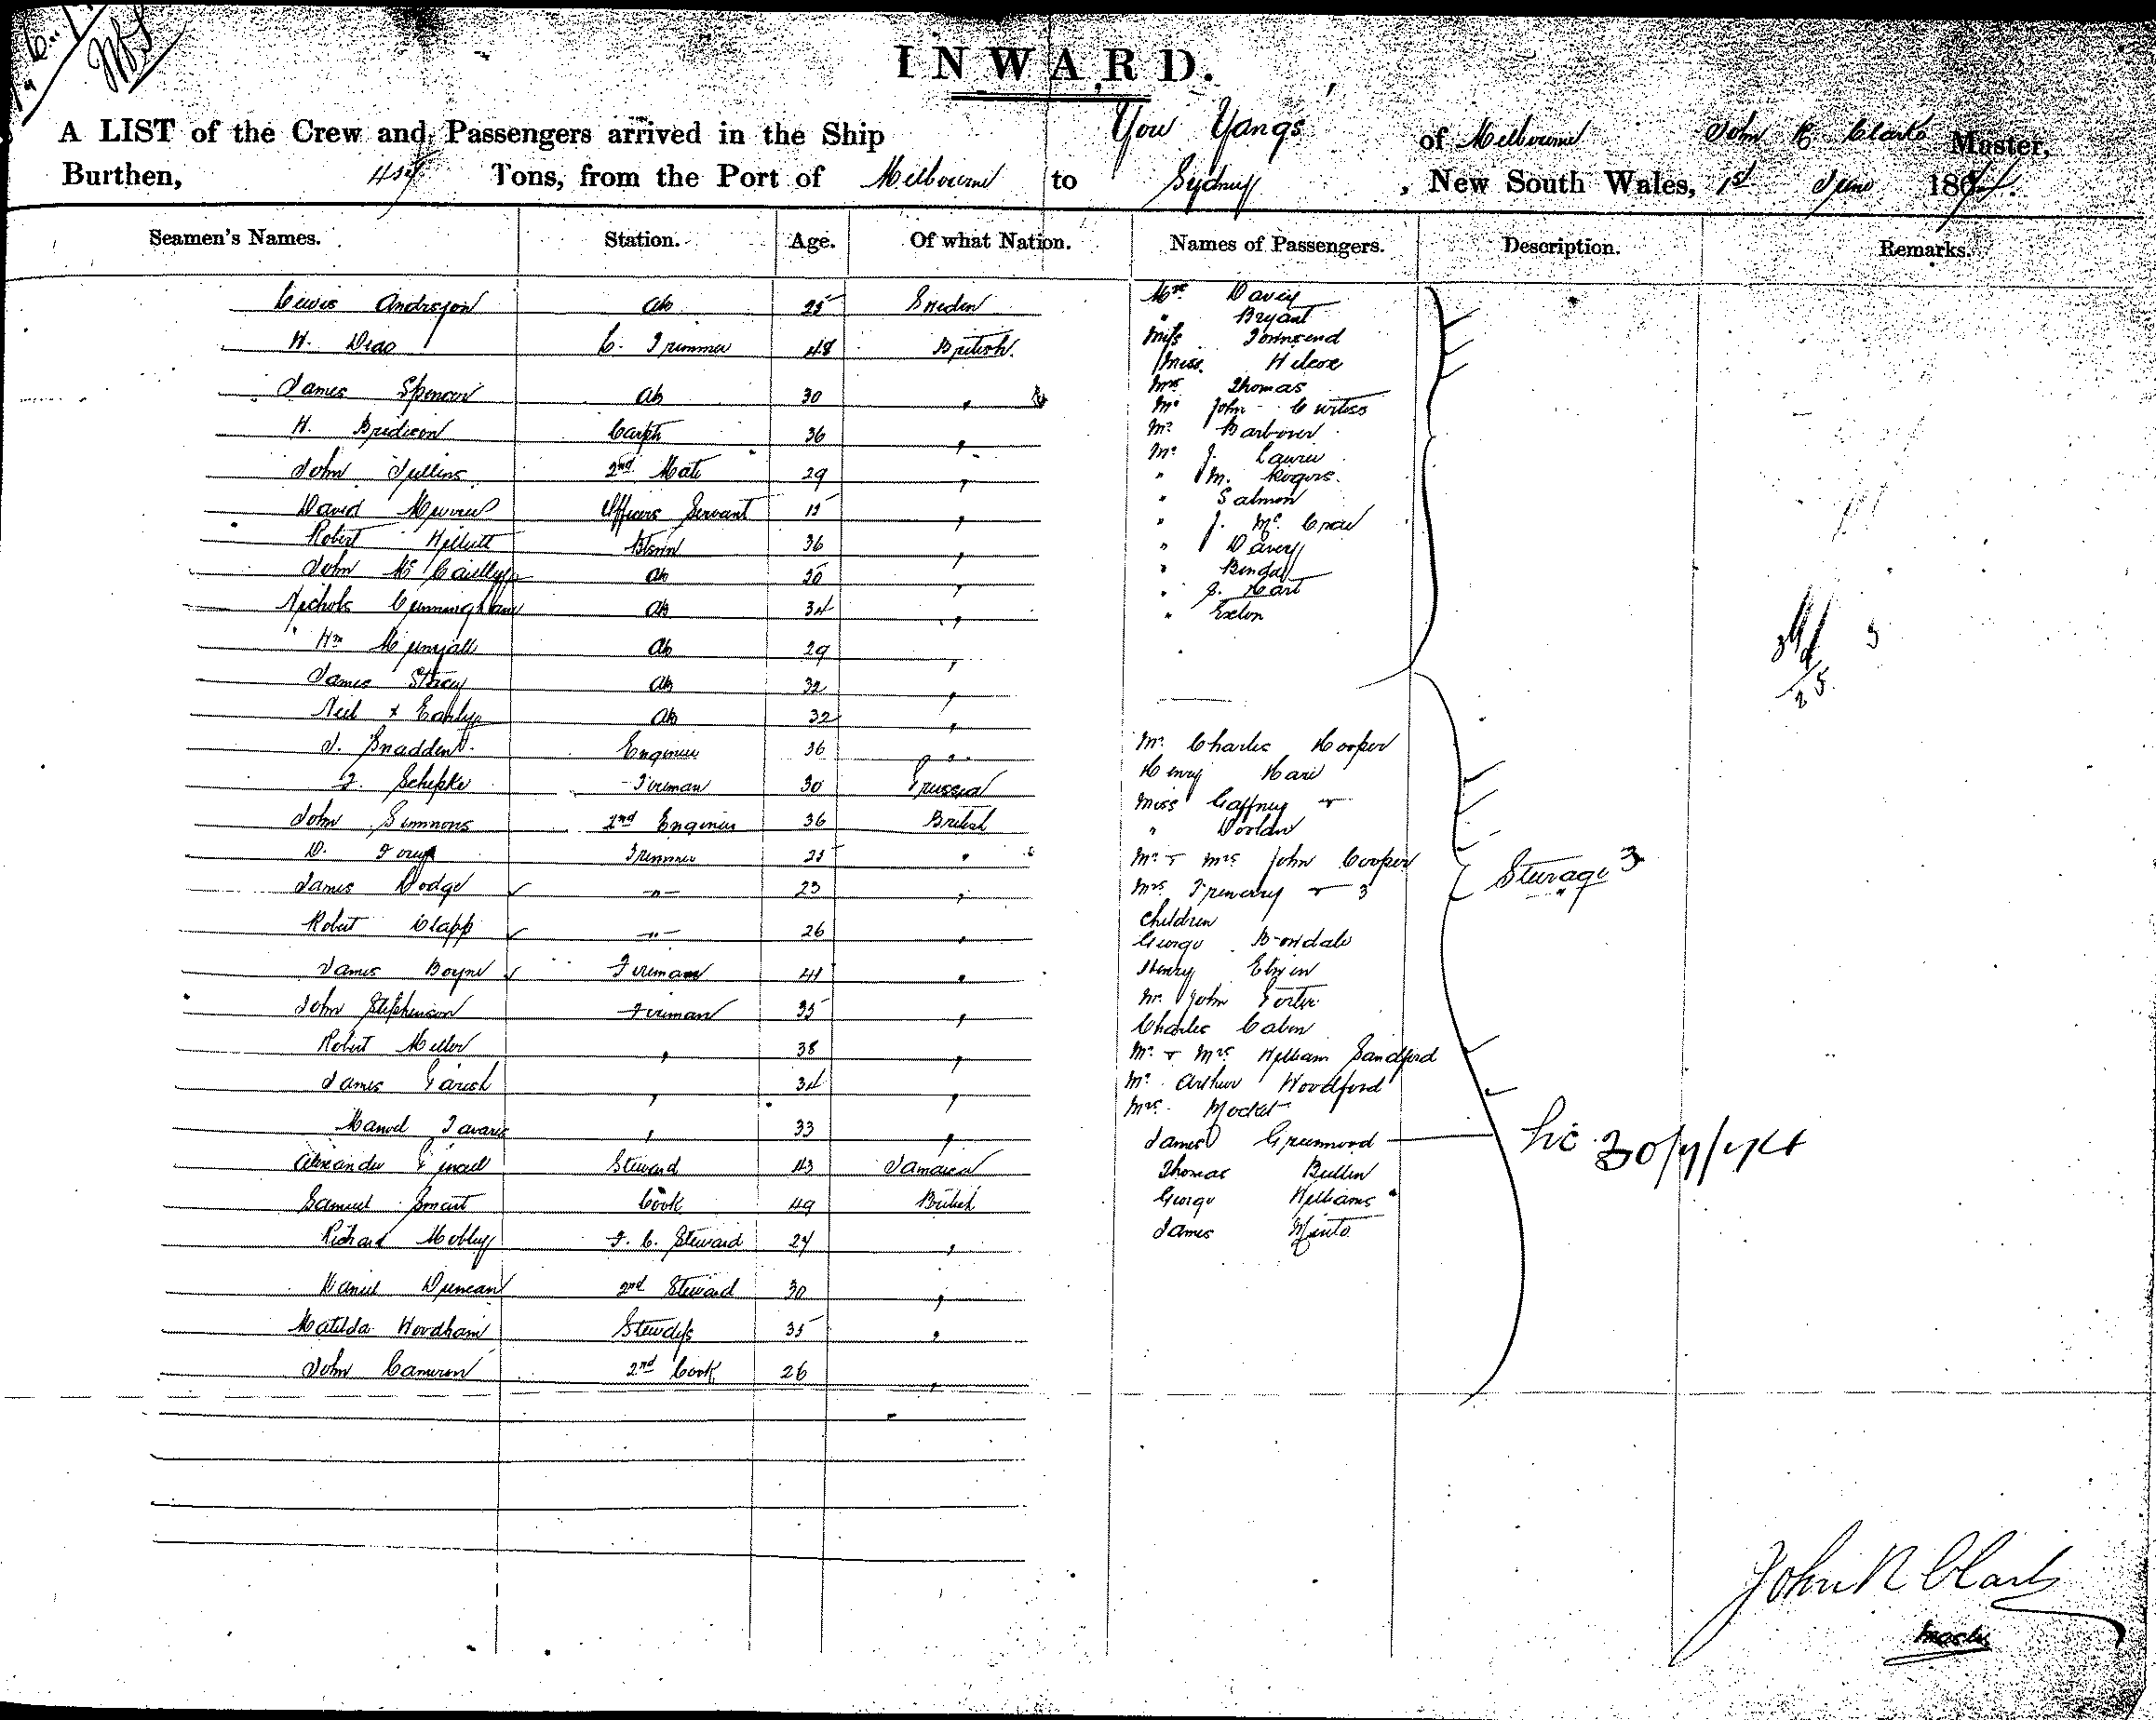 INWARD.
A LIST of the Crew and Passengers arrived in the Ship You Yangs of Melbourne John R Clark Master,
Burthen, Tons, from the Port of Melbourne to Sydney, New South Wales, 1st June 187
Seamen's Names. Station. Age. Of what Nation. Names of Passengers. Description. Remarks.
Lewis Anderson ab 25 Sweden
H. Dead C. Trimmer 48 British
James Spencer ab 30 "
H. Bridson Carptr 36 "
John Jullins 2nd Mate 29 "
David Officers Servant 15 "
Robert 36 "
John Mc ab 20 "
Nichols Cunningham ab 34 "
Wm ab 29 "
James Stacey ab 32 "
Neil x Early ab 32 "
J. Snadden Engineer 36 "
F. Schepke Fireman 30 Prussia
John Simmons 2nd Engineer 36 British
D. Trimmer 25 "
James Dodge -"- 23 "
Robert Clapp -"- 26 "
James Boyne Fireman 41 "
John Stephenson Fireman 35 "
Robert Miller " 38 "
James Parish " 34 "
Manuel Tavares " 33 "
Alexander Steward 43 Jamaica
Samuel Smart Cook 49 British
Richard F. C. Steward 24 "
Daniel Duncan 2nd Steward 30 "
Matilda Woodham Stewdss 35 "
John Cameron 2nd Cook 26 "
Mrs Davey
" Bryant
Miss Townsend
Miss Wilcox
Mrs Thomas
Mr John Curtiss
Mr Barbour
Mr J. Laurie
" M. Rogers
" Salmon
" J. Mc Crae
" Davey
" Bendall
" J. Hart
" Exelon
Mr Charles Hooper
Henry Hare
Miss Gaffney &
" Doolan
Mr & Mrs John Cooper
Mrs Trenerry & 3
Children
George
Henry Elwin
Mr John Porter
Charles Cabin
Mr & Mrs William Sandford
Mr Arthur Woodford
Mrs Mocket
James Greenwood
Thomas Bullen
George Williams
James Minto
Sturage 3
25
John R Clark
Master